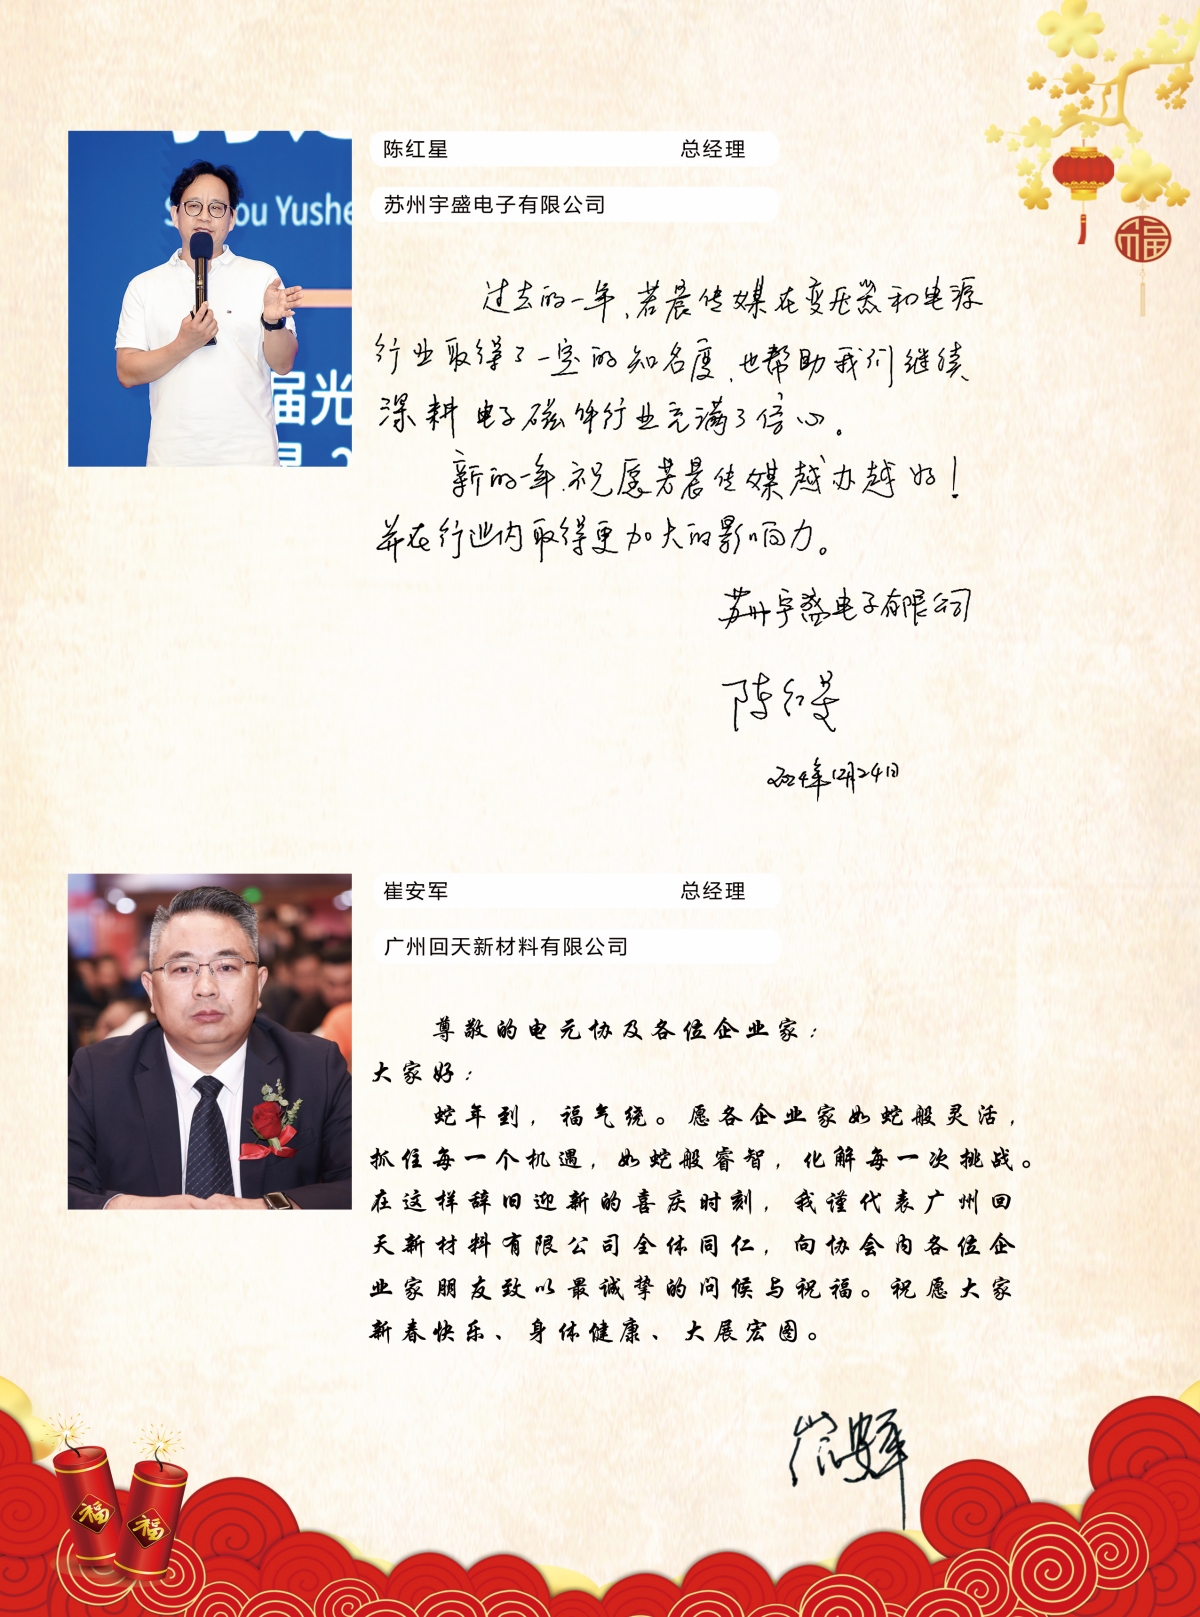 陈红星 总经理
苏州宇盛电子有限公司
ou Yushe
届光
过去的一年、若晨传媒在变压器和电源
行业取得了一定的知名度、也帮助我们继续
深耕电子磁件行业充满了信心。
新的一年、祝愿若晨传媒越办越好!
并在行业内取得更加大的影响力。
苏州宇盛电子有限公司
陈红星
2024年12月24日
崔安军 总经理
广州回天新材料有限公司
尊敬的电元协及各位企业家:
大家好:
蛇年到,福气绕。愿各企业家如蛇般灵活,
抓住每一个机遇,如蛇般睿智,化解每一次挑战。
在这样辞旧迎新的喜庆时刻,我谨代表广州回
天新材料有限公司全体同仁,向协会内各位企
业家朋友致以最诚挚的问候与祝福。祝愿大家
新春快乐、身体健康、大展宏图。
崔安军
福
福
福